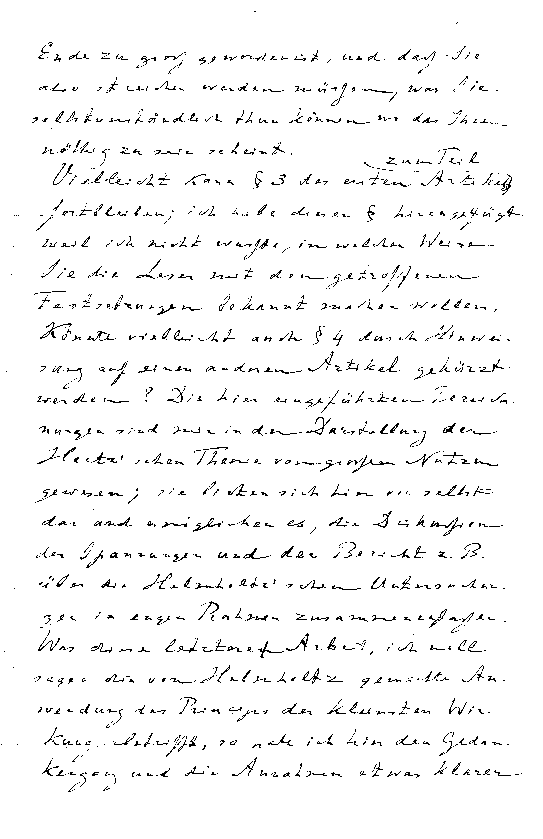 Ende zu gross geworden ist, und dass Sie
also streichen werden müssen, was Sie
selbstverständlich thun können wo das Ihnen
nöthig zu sein scheint.
zum Teil
Vielleicht kann § 3 des ersten Artikels
fortbleiben; ich habe diesen § hinzugefügt
weil ich nicht wusste, in welcher Weise
Sie die Leser mit den getroffenen
Festsetzungen bekannt machen wollen.
Könnte vielleicht auch § 4 durch Hinwei-
sung auf einen anderen Artikel gekürzt
werden? Die hier eingeführten Bezeich-
nungen sind mir in der Darstellung der
Hertz'schen Theorie von grossem Nutzen
gewesen; sie bieten sich hier wie selbst
dar und ermöglichen es, die Diskussion
der Spannungen und den Bericht z. B.
über die Helmholtz'schen Untersuchun-
gen in engen Rahmen zusammenzufassen.
Was diese letztere Arbeit, ich will
sagen die von Helmholtz gemachte An-
wendung des Princips der kleinsten Wir-
kung betrifft, so habe ich hier den Gedan-
kengang und die Annahmen etwas klarer